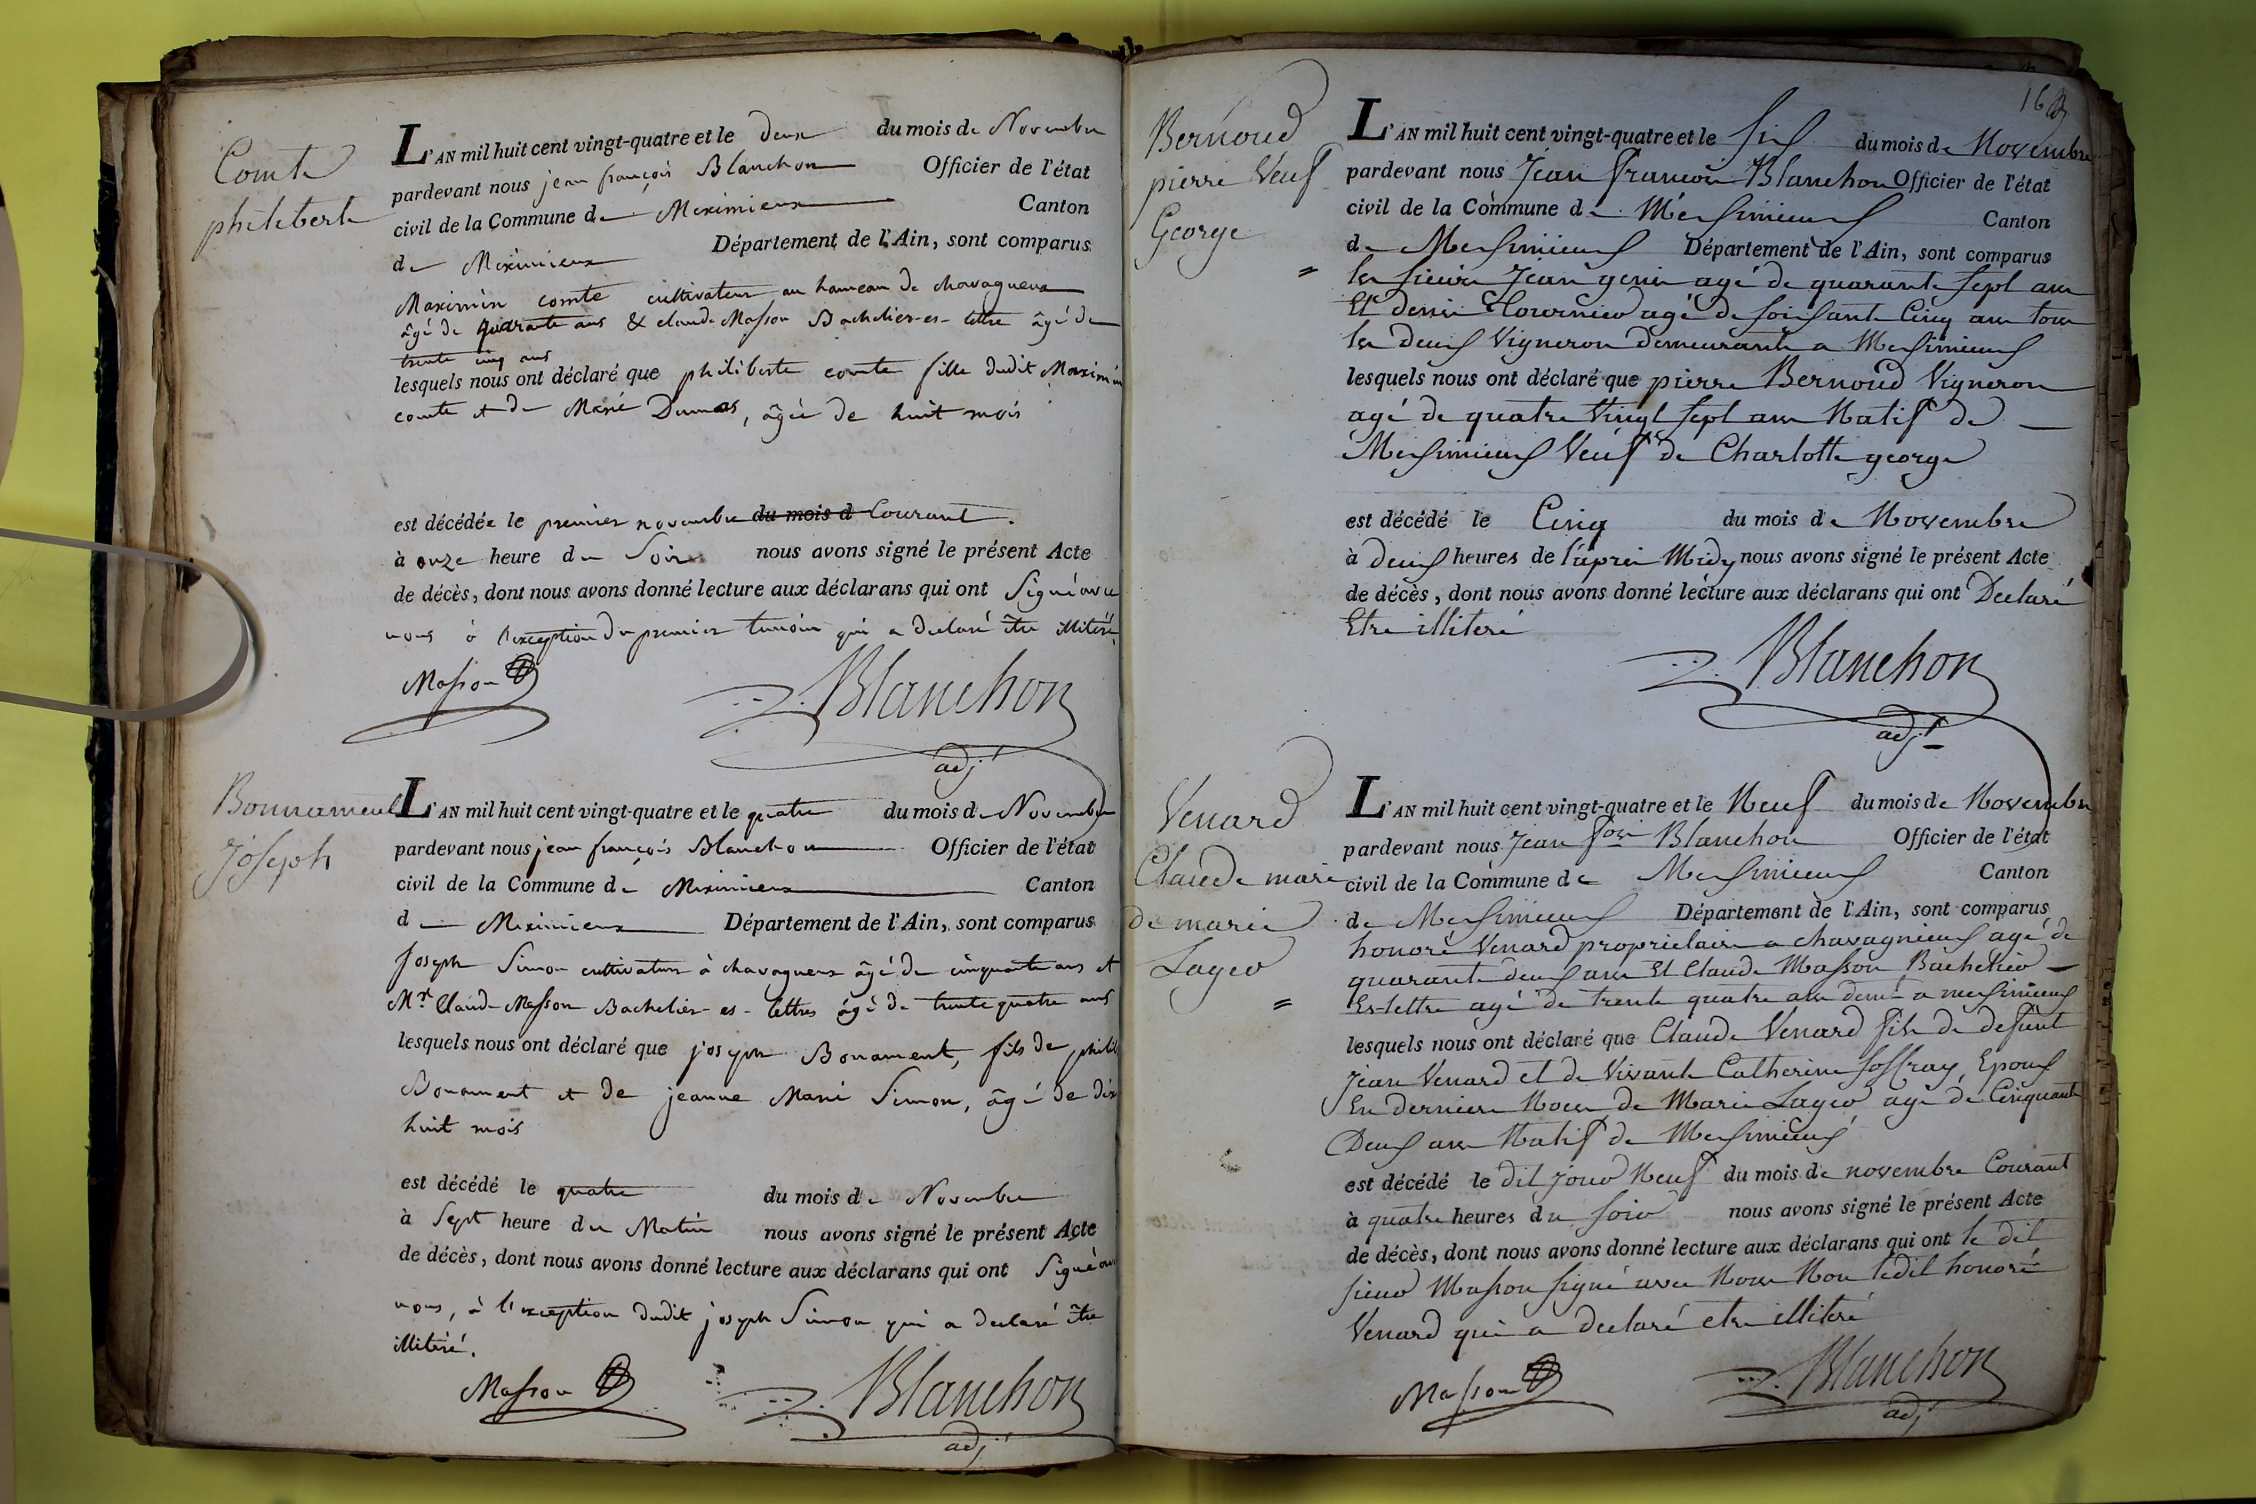 Comte
philiberte
L'AN mil huit cent vingt-quatre et le deux du mois de Novembre
pardevant nous jean françois Blanchon Officier de l'état
civil de la Commune de Meximieux Canton
de Meximieux Département de l'Ain, sont comparus
Maximin comte cultivateur au hameau de chavagneux
âgé de quarante ans & claude Masson Bachelier-es-lettre âgé de
trente cinq ans
lesquels nous ont déclaré que philiberte comte fille dudit Maximin
comte et de Marie Dumas, âgée de huit mois
est décédée le premier novembre du mois d Courant.
à onze heure du Soir nous avons signé le présent Acte
de décès, dont nous avons donné lecture aux déclarans qui ont Signé avec
nous à l'exception du premier temoin qui a declaré être illitéré
Masson
Blanchon
adjt
Bonnament
Joseph
L'AN mil huit cent vingt-quatre et le quatre du mois de Novembre
pardevant nous jean françois Blanchon Officier de l'état
civil de la Commune de Meximieux Canton
de Meximieux Département de l'Ain, sont comparus
Joseph Simon cultivateur à chavagneux âgé de cinquante ans et
Mr. Claude Masson Bachelier-es-lettres âgé de trente quatre ans
lesquels nous ont déclaré que joseph Bonament, fils de philib
Bonament et de jeanne Marie Simon, âgé de dix
huit mois
est décédé le quatre du mois de Novembre
à Sept heure du Matin nous avons signé le présent Acte
de décès, dont nous avons donné lecture aux déclarans qui ont Signé avec
nous, à l'exception dudit joseph Simon qui a declaré être
illitéré.
Masson
Blanchon
adjt
Bernoud
pierre Veuf
George
L'AN mil huit cent vingt-quatre et le Six du mois de Novembre
pardevant nous Jean François Blanchon Officier de l'état
civil de la Commune de Meximieux Canton
de Meximieux Département de l'Ain, sont comparus
les sieurs Jean genin agé de quarante sept ans
Et denis agé de soixante Cinq ans tous
les deux Vigneron demeurants a Meximieux
lesquels nous ont déclaré que pierre Bernoud Vigneron
agé de quatre Vingt sept ans Natif de
Meximieux Veuf de Charlotte george
est décédé le Cinq du mois de Novembre
à deux heures de l'aprés Midy nous avons signé le présent Acte
de décès, dont nous avons donné lecture aux déclarans qui ont Declaré
Etre illiteré
Blanchon
adjt
Venard
Claude mari
de marie
Lager
L'AN mil huit cent vingt-quatre et le Neuf du mois de Novembre
pardevant nous Jean fois Blanchon Officier de l'état
civil de la Commune de Meximieux Canton
de Meximieux Département de l'Ain, sont comparus
honoré Venard proprietaire a chavagnieux agé de
quarante deux ans Et Claude Masson Bachelier
Es-lettre agé de trente quatre ans demt a meximieux
lesquels nous ont déclaré que Claude Venard fils de defunt
Jean Venard et de Vivante Catherine Joffray, Epoux
En derniere Noces de Marie Lager agé de Cinquante
Deux ans Natif de Meximieux
est décédé le dit jour Neuf du mois de novembre Courant
à quatre heures du soir nous avons signé le présent Acte
de décès, dont nous avons donné lecture aux déclarans qui ont le dit
sieur Masson signé avec Nous Non ledit honoré
Venard qui a declaré etre illiteré
Masson
Blanchon
adjt